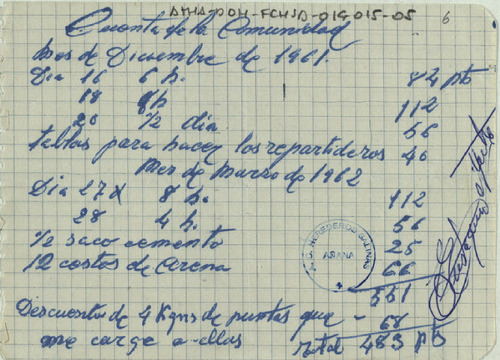 AMAPOH-FCHSD-019-015-05
6
Cuenta de la Comunidad
Mes de Diciembre de 1961.
Dia 16 6 h. 84 pts
18 8h 112
20 1/2 dia 56
tablas para hacer los repartideros 46
Mes de Marzo de 1962
Dia 27 8 h. 112
28 4 h. 56
1/2 saco cemento 25
12 costos de arena 66
551
Descuento de 4 Kgns de puntas que - 68
me cargo a ellos Total 483 pts
HEREDEROS
ASPANA